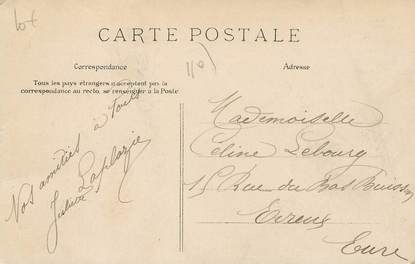 lot
CARTE POSTALE
110)
Correspondance
Adresse
Tous les pays étrangers n'acceptent pas la
correspondance au recto, se renseigner à la Poste.
Nos amitiés à tous
Laplagie
Mademoiselle
Céline Lebourg
15 Rue du Bas Buisson
Evreux
Eure